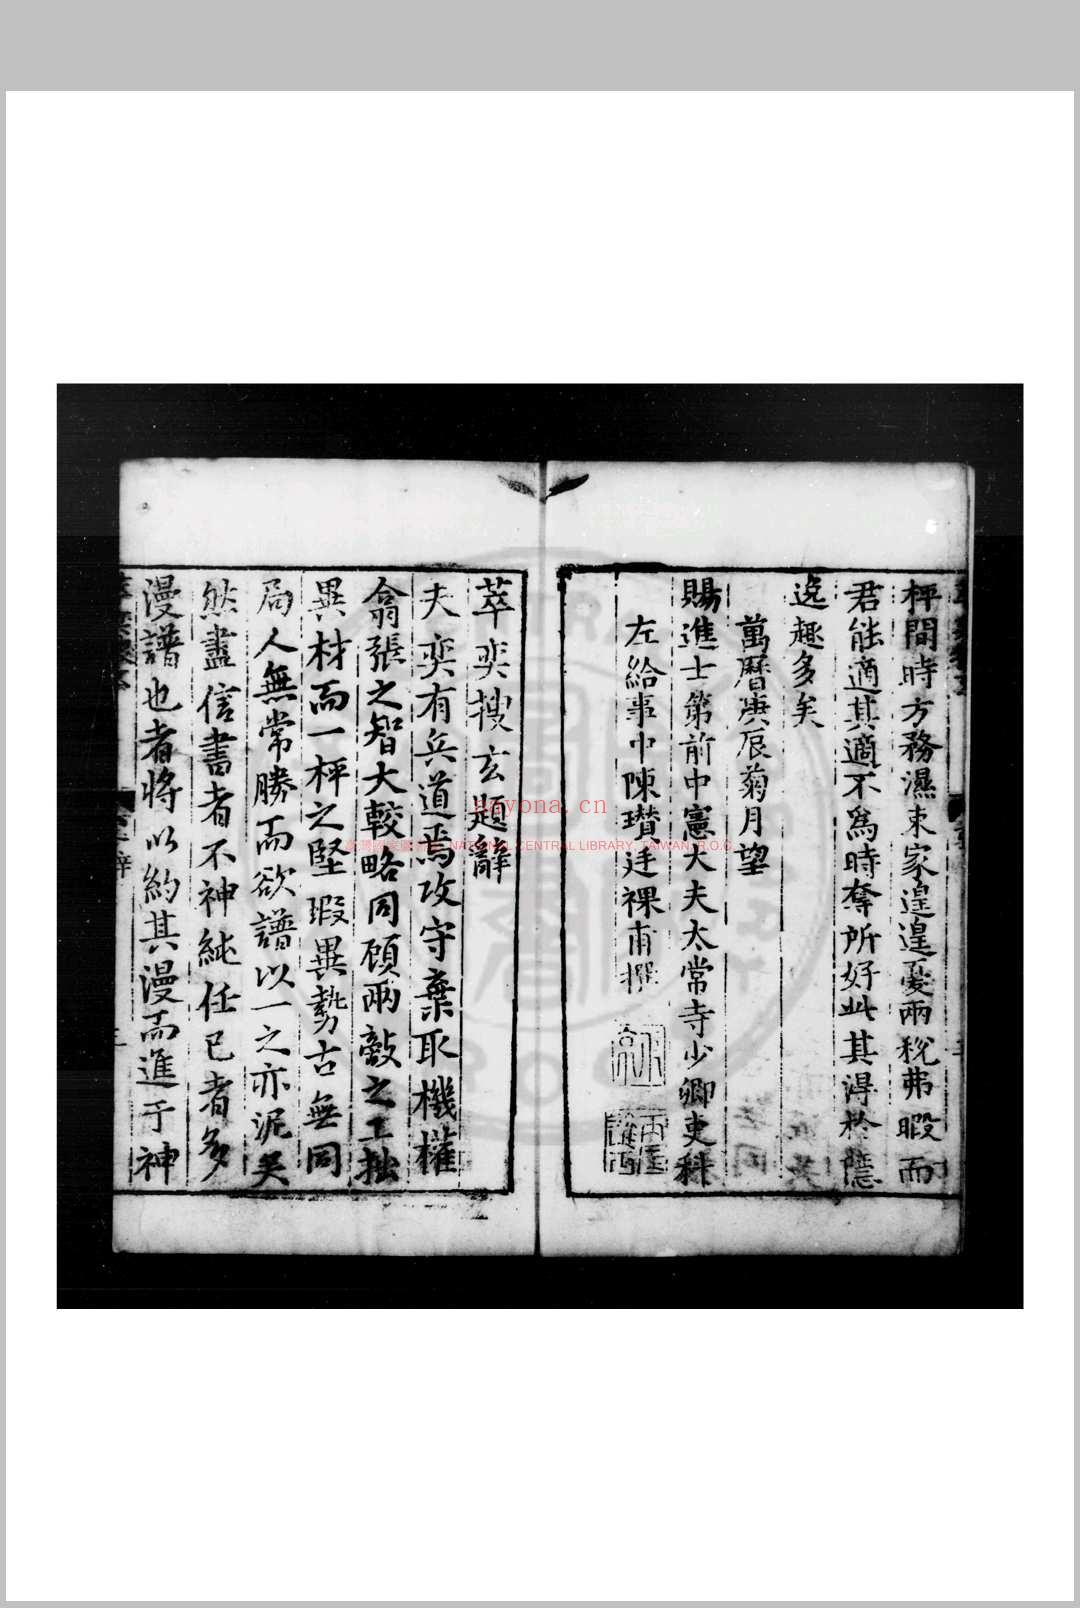 枰間時方務濕束家遑遑憂兩稅弗暇而
君能適其適不為時奪所好此其淂於隱
逸趣多矣
萬曆庚辰菊月望
賜進士第前中憲大夫太常寺少卿吏科
左給事中陳瓚廷祼甫撰
萃奕搜玄題辭
夫奕有兵道焉攻守棄取機權
翕張之智大較略同顧兩敵之工拙
異材而一枰之堅瑕異勢古無同
局人無常勝而欲譜以一之亦泥矣
然盡信書者不神純任已者多
漫譜也者將以約其漫而進于神
anyona.cn
NATIONAL CENTRAL LIBRARY, TAIWAN, R.O.C.